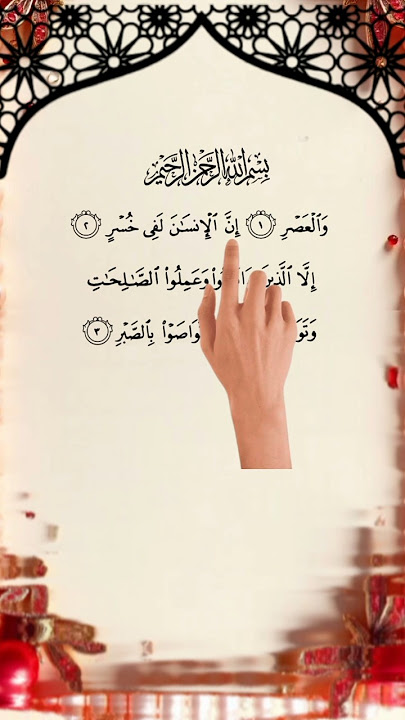 بِسْمِ اللَّهِ الرَّحْمَٰنِ الرَّحِيمِ
وَٱلْعَصْرِ ١ إِنَّ ٱلْإِنسَٰنَ لَفِى خُسْرٍ ٢
إِلَّا ٱلَّذِينَ وَعَمِلُوا۟ ٱلصَّٰلِحَٰتِ
بِٱلصَّبْرِ ٣